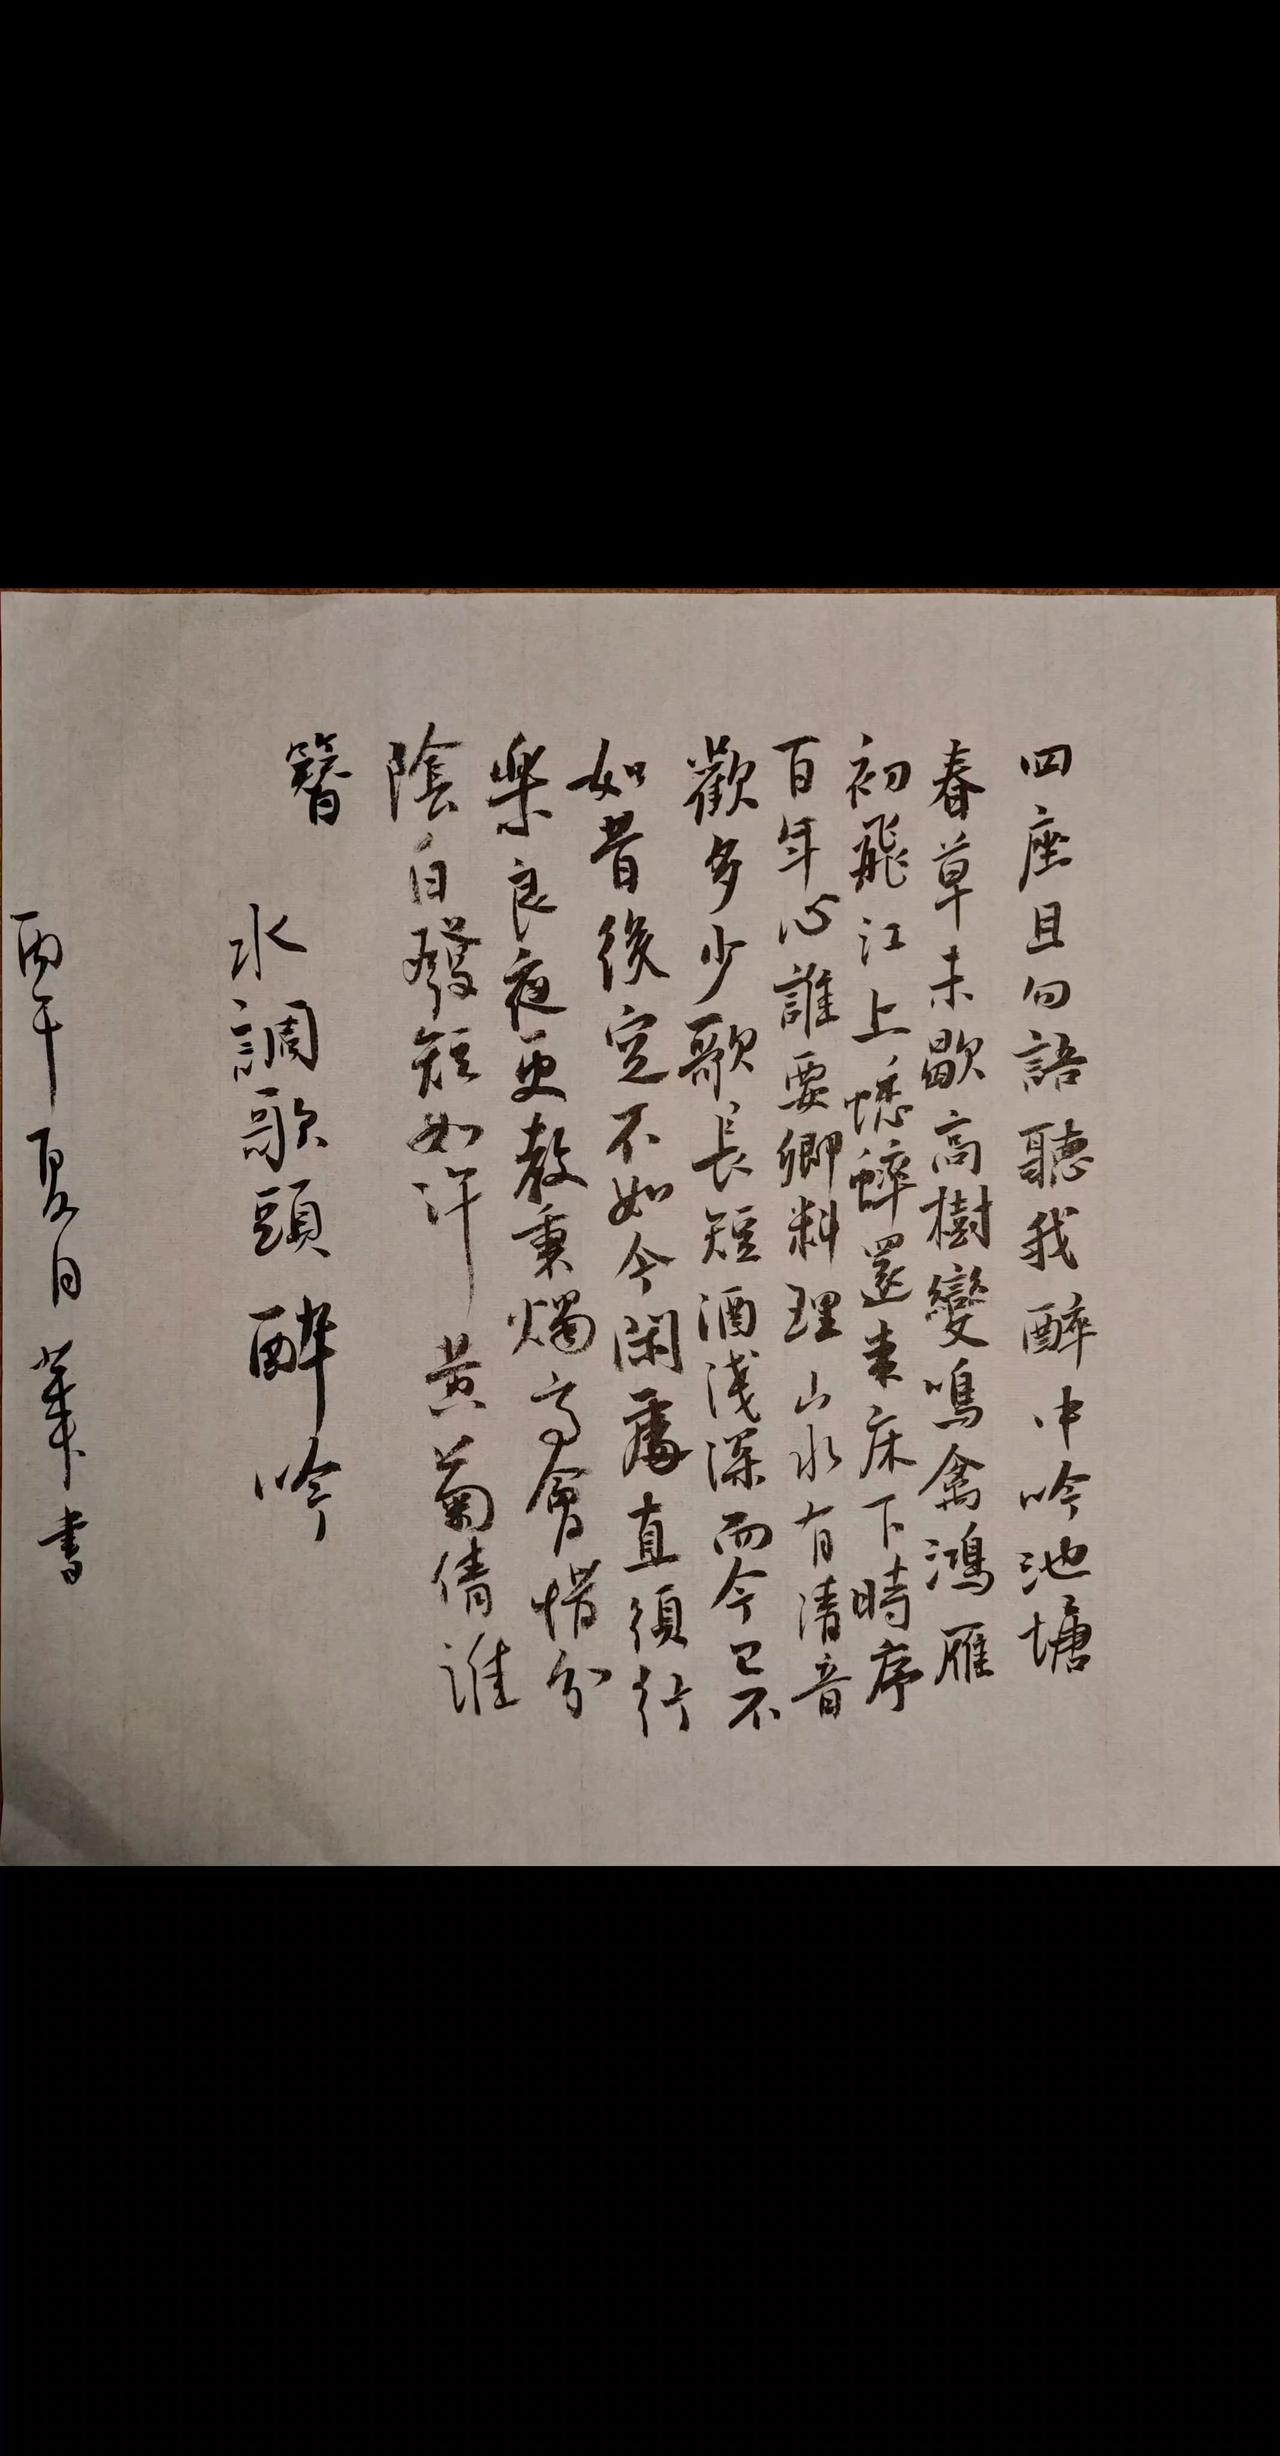 四座且勿語聽我醉中吟池塘
春草未歇高樹變鳴禽鴻雁
初飛江上蟋蟀還來床下時序
百年心誰要卿料理山水有清音
歡多少歌長短酒淺深而今已不
如昔後定不如今閑處直須行
樂良夜更教秉燭高會惜分
陰白發短如許黃菊倩誰
簪
水調歌頭醉吟
丙午夏日 書